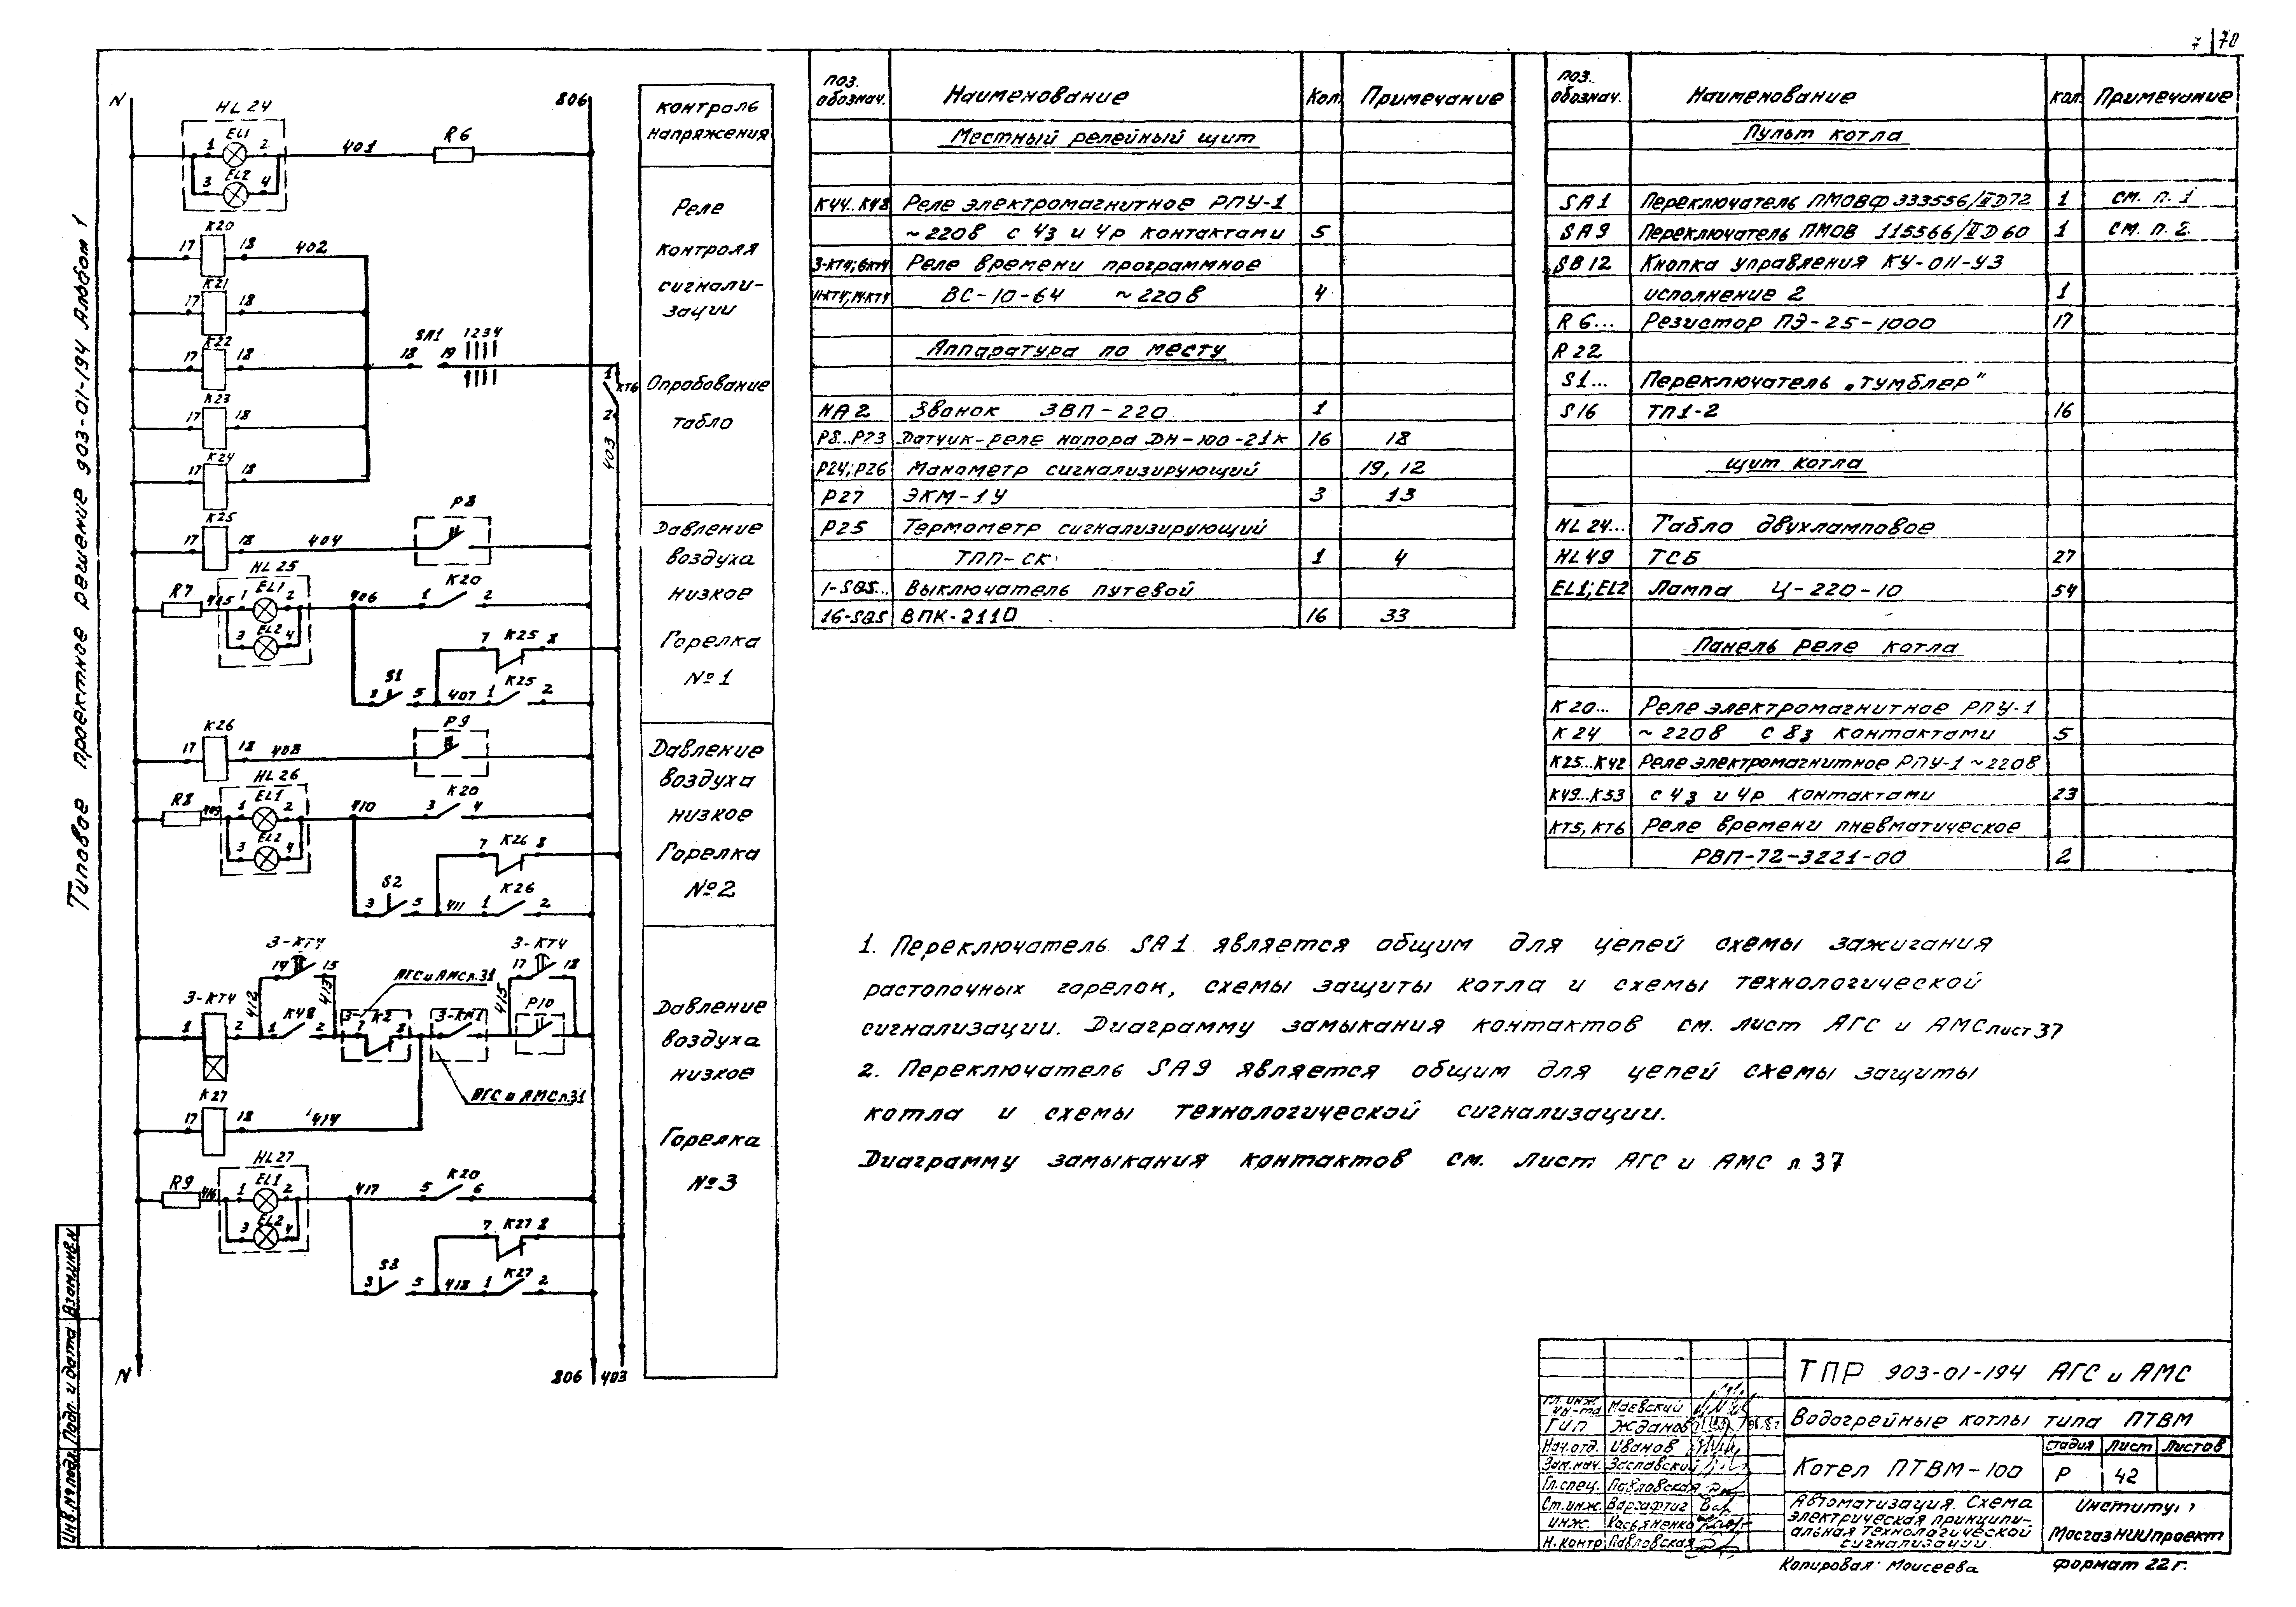 7 70
Типовое проектное решение 903-01-194 Альбом 1
N
806
HL24
EL1
1 2
EL2
3 4
401
R6
K20
17 18 402
K21
17 18
K22
17 18
SA1 1234
18 19
K23
17 18
K24
17 18
1 KT6
2
403
K25
17 18 404
P8
HL25
R7 405
EL1
1 2
EL2
3 4
406
K20
1 2
7 K25 8
S1
3 5 407
K25
1 2
K26
17 18 408
P9
HL26
R8 409
EL1
1 2
EL2
3 4
410
K20
3 4
7 K26 8
S2
3 5 411
K26
1 2
3-КТ4
14 15
3-КТ4
17 18
АГС и АМС л.31
412 413 415
3-КТ4
1 2
K48
1 2
3-K2
7 8
3-КМ1
P10
АГС и АМС л.31
K27
17 18 414
HL27
R9 416
EL1
1 2
EL2
3 4
417
K20
5 6
7 K27 8
S3
3 5 418
K27
1 2
N
806 403
контроль
напряжения
Реле
контроля
сигнали-
зации
Опробование
табло
Давление
воздуха
низкое
Горелка
№1
Давление
воздуха
низкое
Горелка
№2
Давление
воздуха
низкое
Горелка
№3
поз. обознач. Наименование Кол. Примечание
Местный релейный щит
К44..К48 Реле электромагнитное РПУ-1
~220в с 4з и 4р контактами 5
3-КТ4;6КТ4 Реле времени программное
11-КТ4;14-КТ4 ВС-10-64 ~220в 4
Аппаратура по месту
НА2 Звонок ЗВП-220 1
Р8...Р23 Датчик-реле напора ДН-100-21к 16 18
Р24;Р26 Манометр сигнализирующий 19, 12
Р27 ЭКМ-1У 3 13
Р25 Термометр сигнализирующий
ТПП-СК 1 4
1-SQ5... Выключатель путевой
16-SQ5 ВПК-2110 16 33
поз. обознач. Наименование кол. Примечание
Пульт котла
SA1 Переключатель ПМОВФ 333556/IIД72 1 см. п. 1
SA9 Переключатель ПМОВ 115566/IIД60 1 см. п. 2.
SB12 Кнопка управления КУ-011-У3
исполнение 2 1
R6... Резистор ПЭ-25-1000 17
R22
S1... Переключатель „тумблер”
S16 ТП1-2 16
щит котла
HL24... Табло двухламповое
HL49 ТСБ 27
EL1;EL2 Лампа Ц-220-10 54
Панель реле котла
К20... Реле электромагнитное РПУ-1
К24 ~220в с 8з контактами 5
К25...К42 Реле электромагнитное РПУ-1 ~220в
К49...К53 с 4з и 4р контактами 23
КТ5,КТ6 Реле времени пневматическое
РВП-72-3221-00 2
1. Переключатель SA1 является общим для цепей схемы зажигания
растопочных горелок, схемы защиты котла и схемы технологической
сигнализации. Диаграмму замыкания контактов см. лист АГС и АМС лист 37
2. Переключатель SA9 является общим для цепей схемы защиты
котла и схемы технологической сигнализации.
Диаграмму замыкания контактов см. Лист АГС и АМС л.37
Инв.№подл. Подп. и дата Взам.инв.N
Гл. инж. ин-та Маевский
ГИП Жданов
Нач.отд. Иванов
Зам.нач. Заславский
Гл.спец. Павловская
Ст.инж. Варгафтиг
инж. Касьяненко
Н.контр Павловская
ТПР 903-01-194 АГС и АМС
Водогрейные котлы типа ПТВМ
Котел ПТВМ-100
стадия Лист Листов
Р 42
Автоматизация. Схема
электрическая принципи-
альная технологической
сигнализации.
Институт
МосгазНИИпроект
Копировал: Моисеева формат 22г.